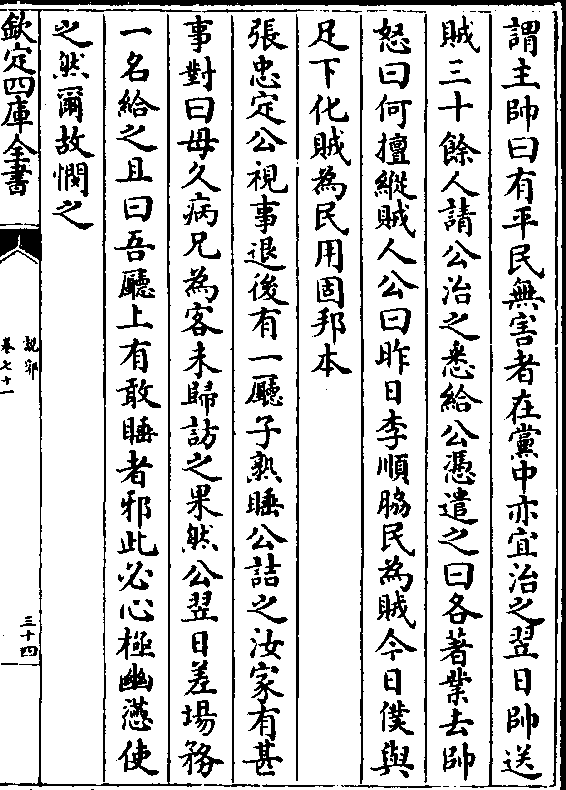 謂主帥曰有平民無害者在黨中亦宜治之翌日帥送
賊三十餘人請公治之悉給公憑遣之曰各著業去帥
怒曰何擅縱賊人公曰昨日李順脇民為賊今日僕與
足下化賊為民用固邦本
張忠定公視事退後有一廳子熟睡公詰之汝家有甚
事對曰母久病兄為客未歸訪之果然公翌日差場務
一名給之且曰吾廳上有敢睡者邪此必心極幽懣使
之然爾故憫之
欽定四庫全書
說郛
卷七十一
三十四